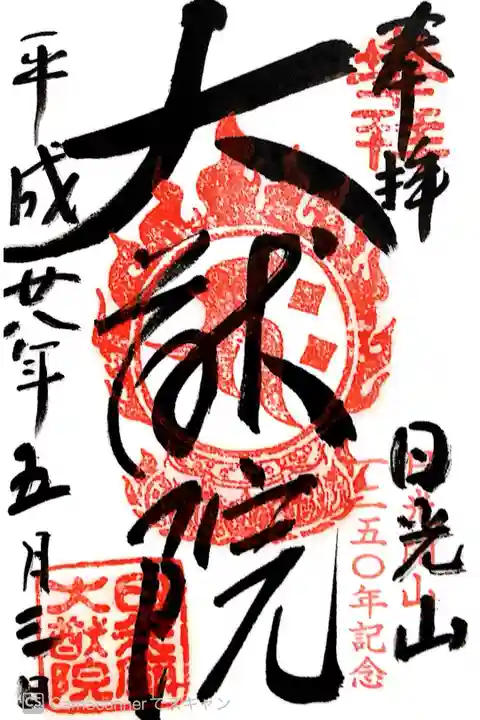 奉拝
日光山
一二五〇年記念
大猷院
平成廿八年五月三日
大猷院
CS CamScanner でスキャン